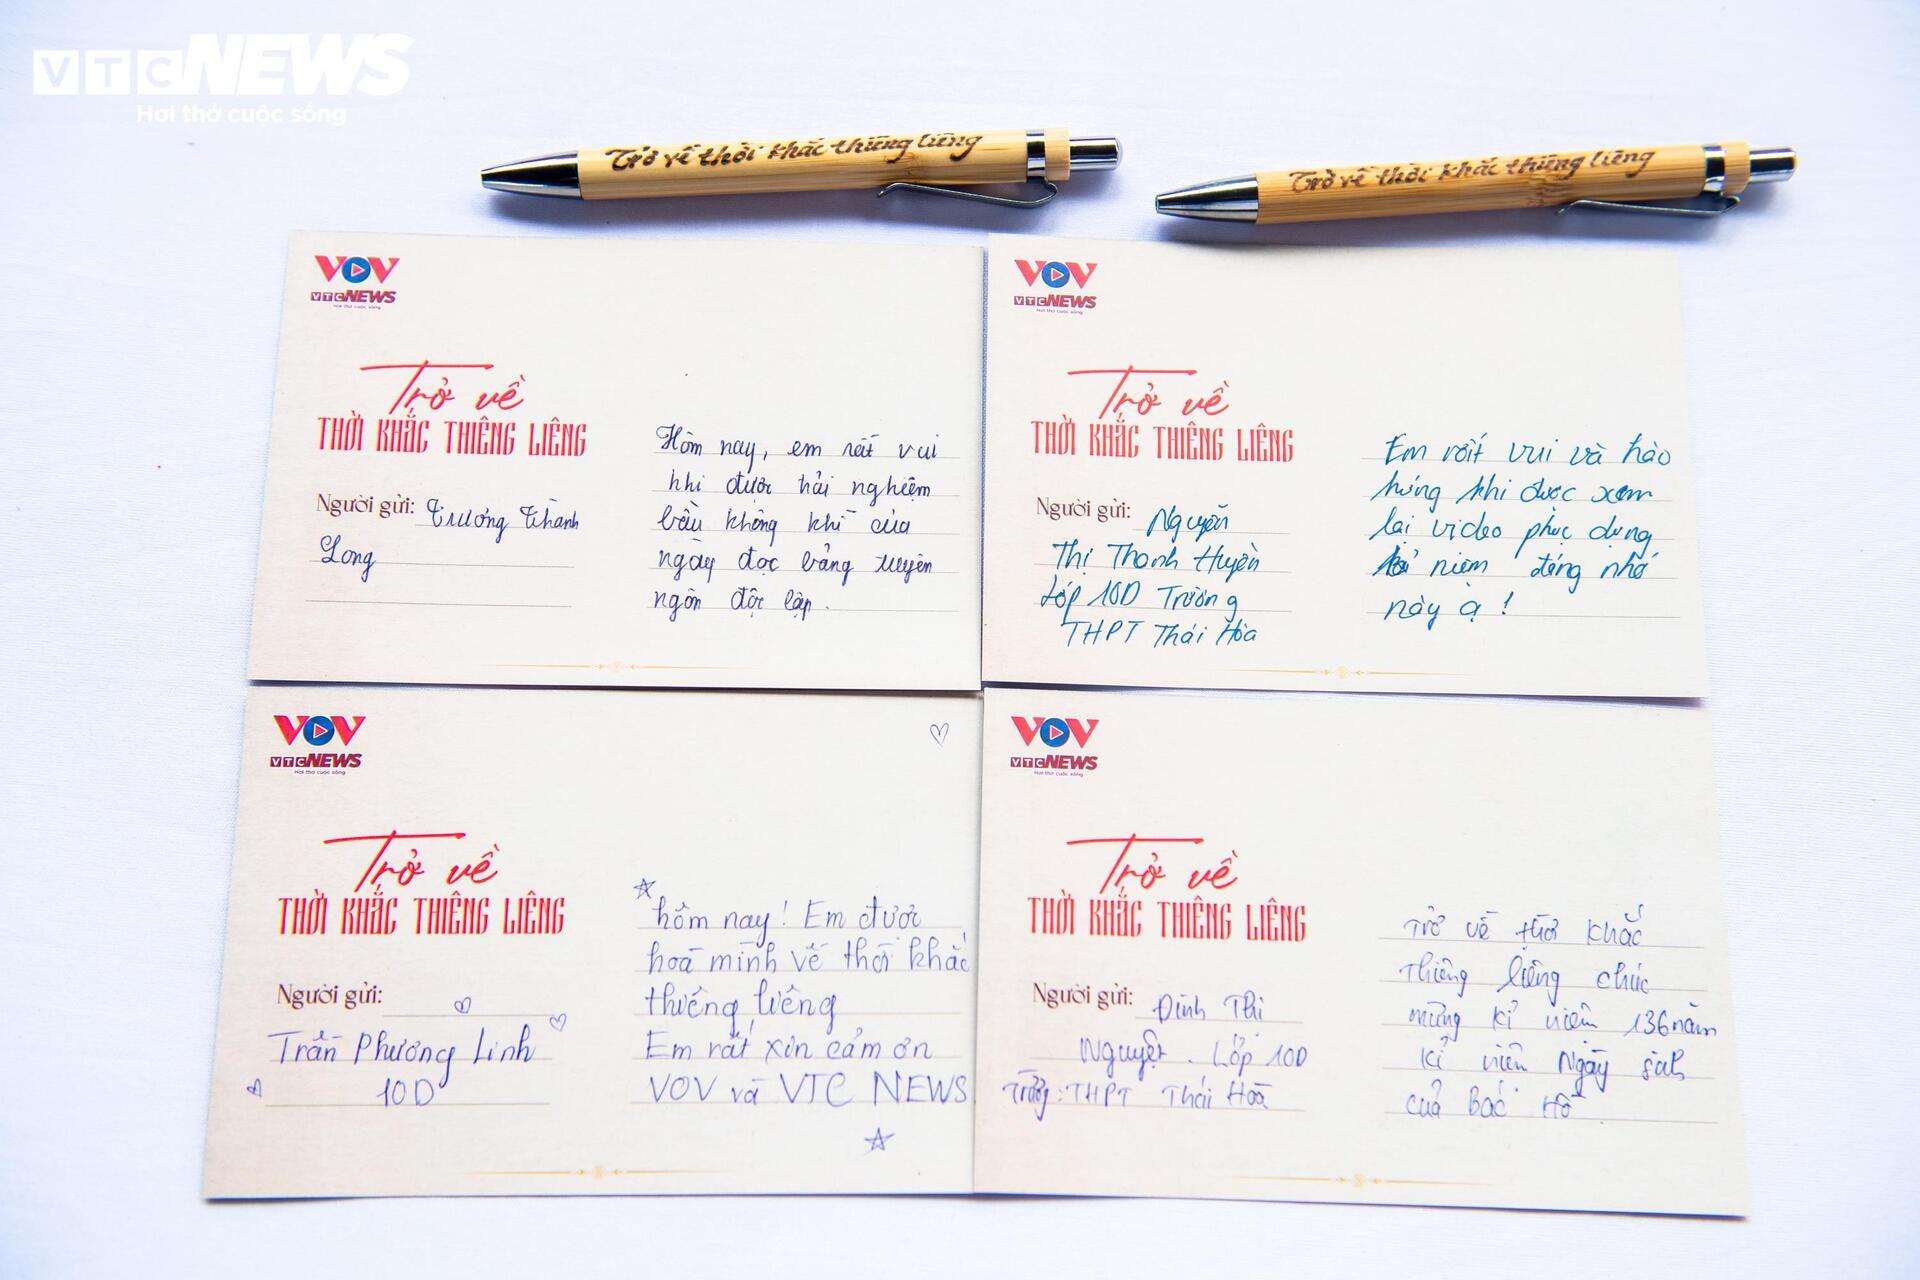 VTC NEWS
Hơi thở cuộc sống
Trở về thời khắc thiêng liêng
Trở về thời khắc thiêng liêng
VOV
VTC NEWS
Hơi thở cuộc sống
Trở về
THỜI KHẮC THIÊNG LIÊNG
Người gửi: Trương Thành
Long
Hôm nay, em rất vui
khi được trải nghiệm
bầu không khí của
ngày đọc bảng tuyên
ngôn độc lập.
VOV
VTC NEWS
Hơi thở cuộc sống
Trở về
THỜI KHẮC THIÊNG LIÊNG
Người gửi: Nguyễn
Thị Thanh Huyền
Lớp 10D Trường
THPT Thái Hòa
Em rất vui và hào
hứng khi được xem
lại video phục dựng
niệm đáng nhớ
này ạ !
VOV
VTC NEWS
Hơi thở cuộc sống
Trở về
THỜI KHẮC THIÊNG LIÊNG
Người gửi:
Trần Phương Linh
10D
hôm nay ! Em được
hoà mình về thời khắc
thiêng liêng
Em rất xin cảm ơn
VOV và VTC NEWS
VOV
VTC NEWS
Hơi thở cuộc sống
Trở về
THỜI KHẮC THIÊNG LIÊNG
Người gửi: Đinh Thị
Nguyệt . Lớp 10D
Trường : THPT Thái Hoà
Trở về thời khắc
Thiêng liêng chúc
mừng kỉ niệm 136 năm
kỉ niệm Ngày sinh
của Bác Hồ